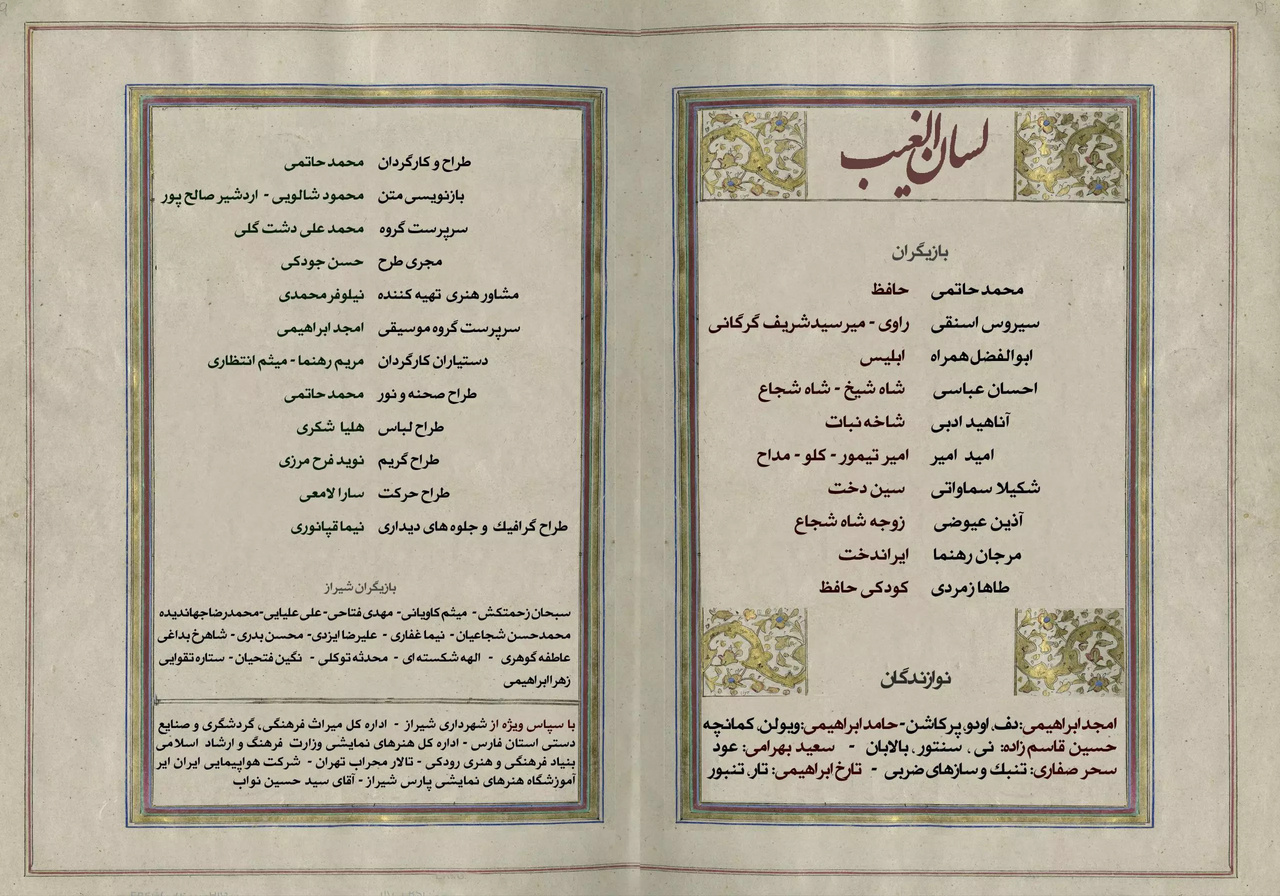 لسان الغیب
بازیگران
محمد حاتمی حافظ
سیروس اسنقی راوی - میرسیدشریف گرگانی
ابوالفضل همراه ابلیس
احسان عباسی شاه شیخ - شاه شجاع
آناهید ادبی شاخه نبات
امید امیر امیر تیمور - کلو - مداح
شکیلا سماواتی سین دخت
آذین عیوضی زوجه شاه شجاع
مرجان رهنما ایراندخت
طاها زمردی کودکی حافظ
نوازندگان
امجد ابراهیمی: دف، اودو، پرکاشن - حامد ابراهیمی: ویولن، کمانچه
حسین قاسم زاده: نی، سنتور، بالابان - سعید بهرامی: عود
سحر صفاری: تنبك و سازهای ضربی - تارخ ابراهیمی: تار، تنبور
طراح و کارگردان محمد حاتمی
بازنویسی متن محمود شالویی - اردشیر صالح پور
سرپرست گروه محمد علی دشت گلی
مجری طرح حسن جودکی
مشاور هنری تهیه کننده نیلوفر محمدی
سرپرست گروه موسیقی امجد ابراهیمی
دستیاران کارگردان مریم رهنما - میثم انتظاری
طراح صحنه و نور محمد حاتمی
طراح لباس هلیا شکری
طراح گریم نوید فرح مرزی
طراح حرکت سارا لامعی
طراح گرافیك و جلوه های دیداری نیما قپانوری
بازیگران شیراز
سبحان زحمتکش - میثم کاویانی - مهدی فتاحی - علی علیایی - محمدرضا جهاندیده
محمدحسن شجاعیان - نیما غفاری - علیرضا ایزدی - محسن بدری - شاهرخ بداغی
عاطفه گوهری - الهه شکسته ای - محدثه توکلی - نگین فتحیان - ستاره تقوایی
زهرا ابراهیمی
با سپاس ویژه از شهرداری شیراز - اداره کل میراث فرهنگی، گردشگری و صنایع
دستی استان فارس - اداره کل هنرهای نمایشی وزارت فرهنگ و ارشاد اسلامی
بنیاد فرهنگی و هنری رودکی - تالار محراب تهران - شرکت هواپیمایی ایران ایر
آموزشگاه هنرهای نمایشی پارس شیراز - آقای سید حسین نواب